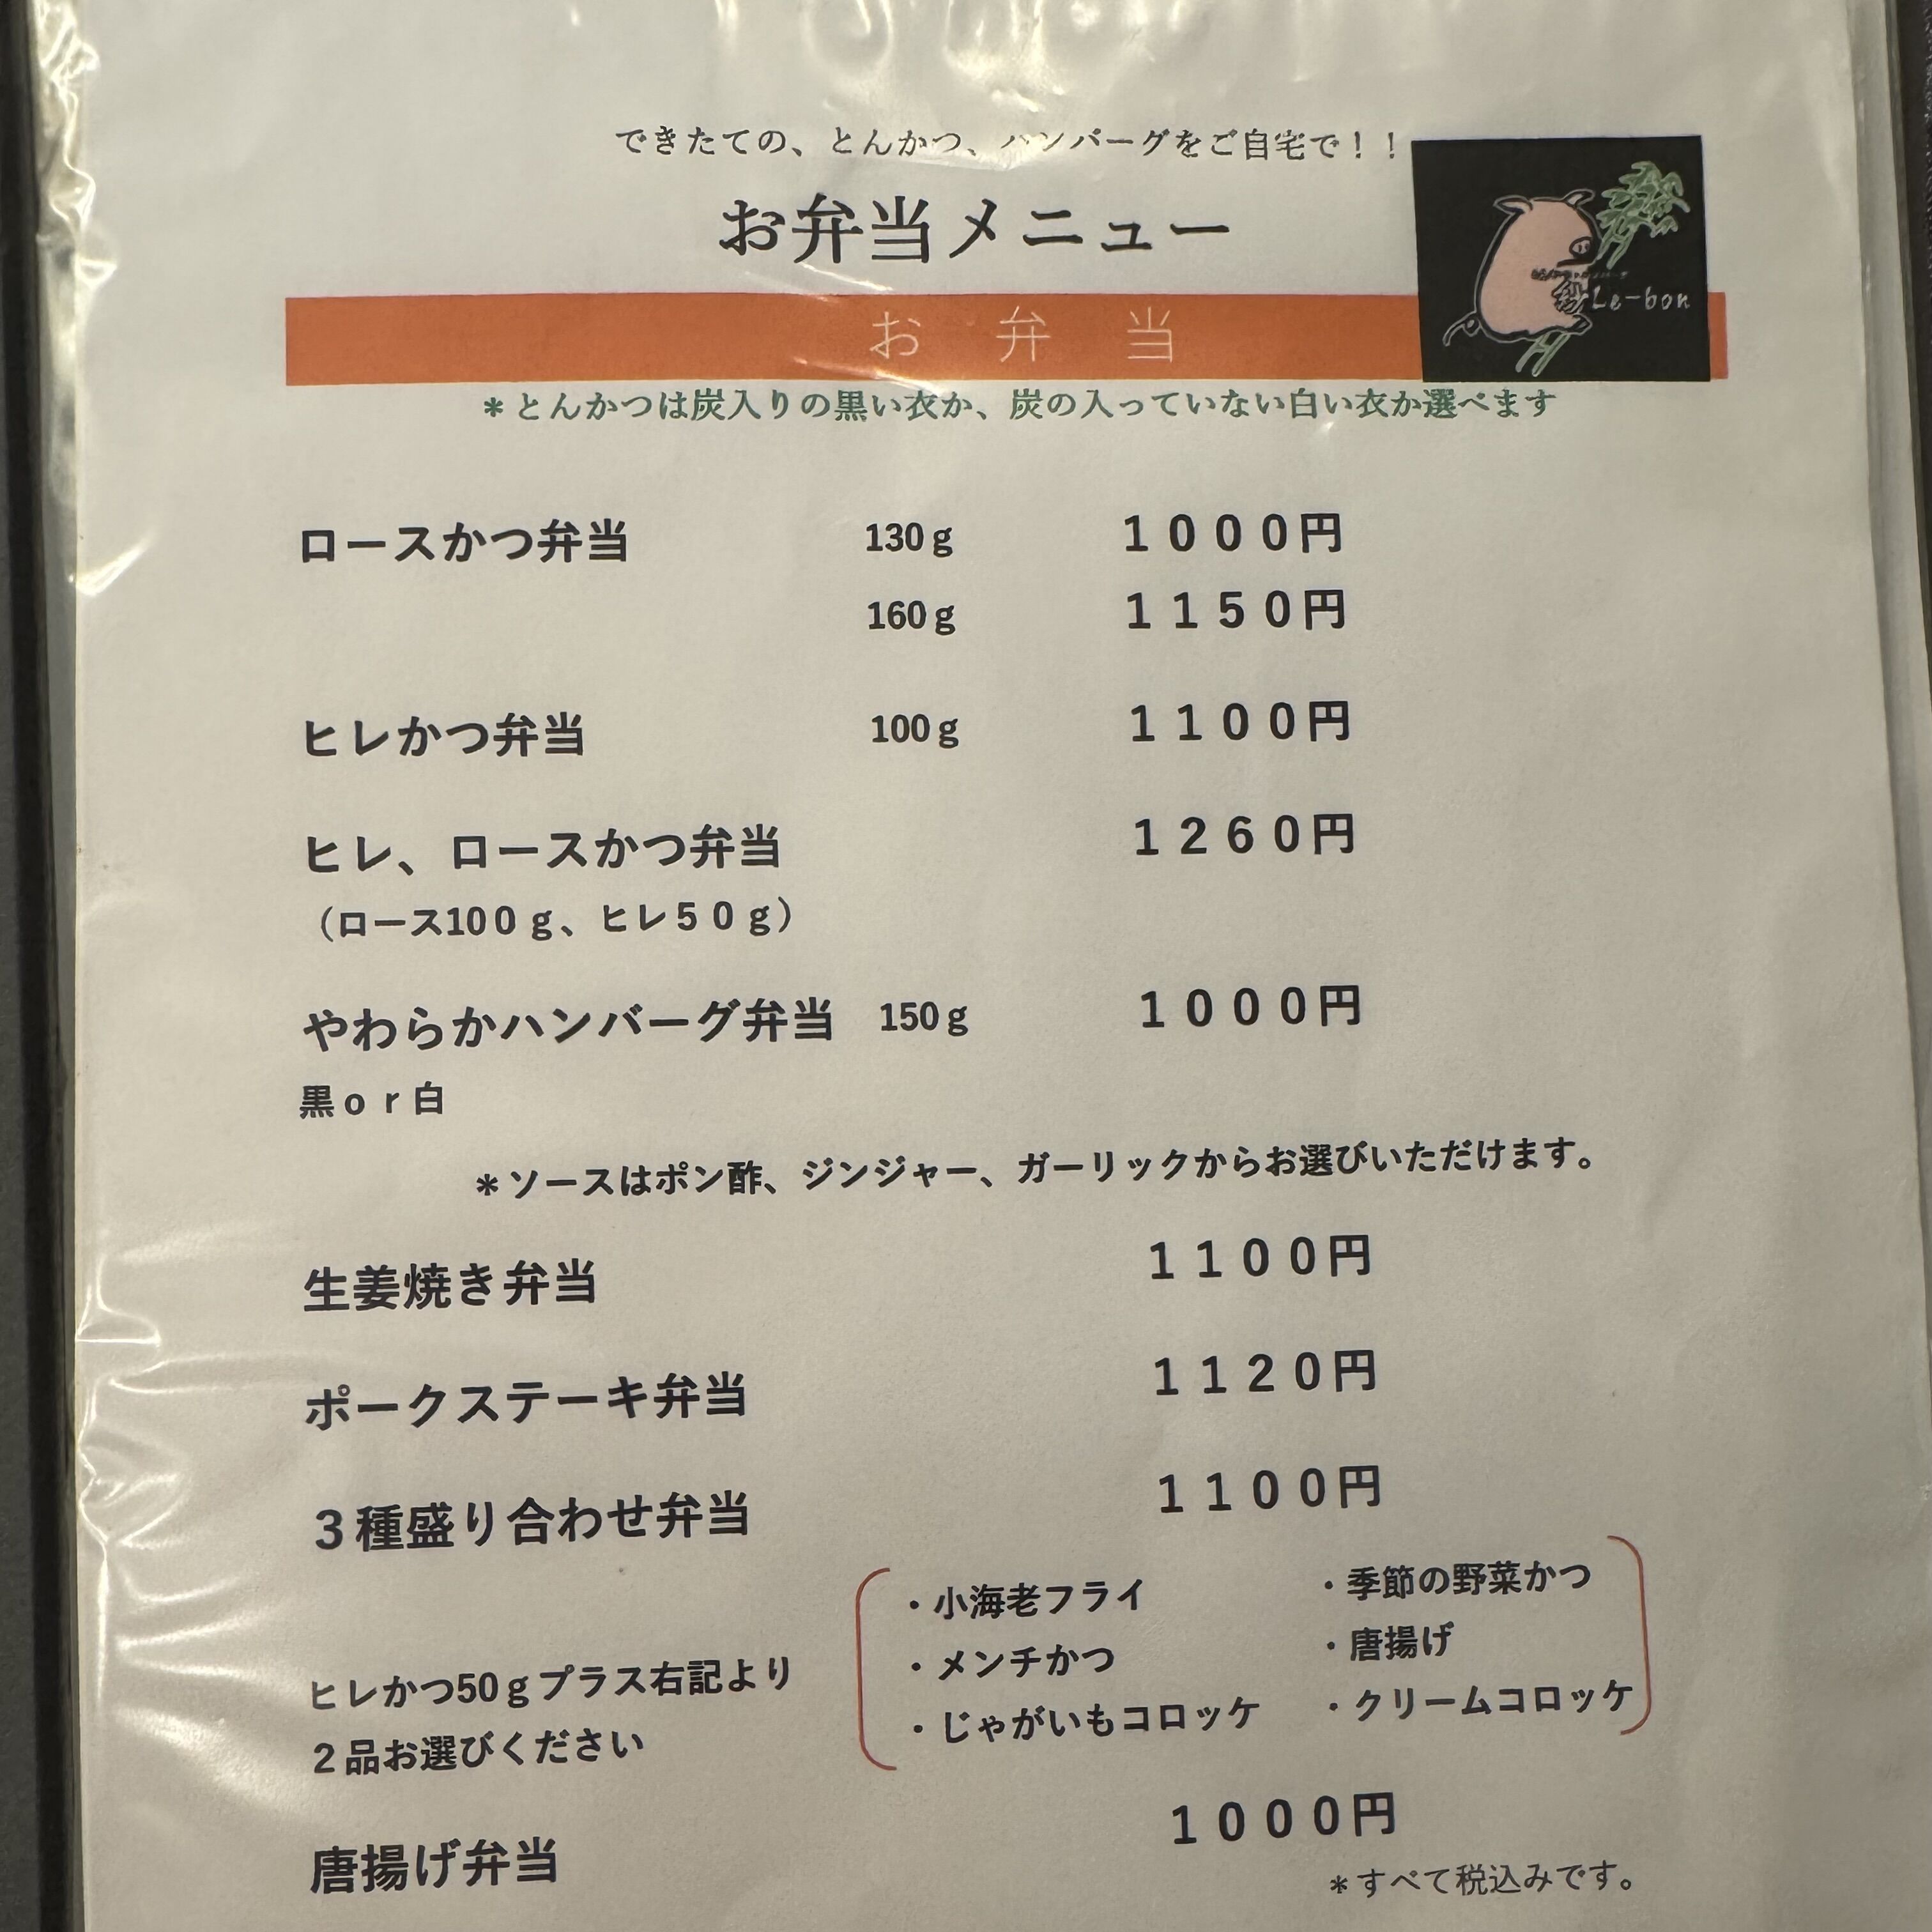 できたての、とんかつ、ハンバーグをご自宅で！！
お弁当メニュー
Le-bon
お弁当
＊とんかつは炭入りの黒い衣か、炭の入っていない白い衣か選べます
ロースかつ弁当 130ｇ １０００円
160ｇ １１５０円
ヒレかつ弁当 100ｇ １１００円
ヒレ、ロースかつ弁当 １２６０円
（ロース100ｇ、ヒレ５０ｇ）
やわらかハンバーグ弁当 150ｇ １０００円
黒ｏｒ白
＊ソースはポン酢、ジンジャー、ガーリックからお選びいただけます。
生姜焼き弁当 １１００円
ポークステーキ弁当 １１２０円
３種盛り合わせ弁当 １１００円
・小海老フライ ・季節の野菜かつ
・メンチかつ ・唐揚げ
・じゃがいもコロッケ ・クリームコロッケ
ヒレかつ50ｇプラス右記より
２品お選びください
唐揚げ弁当 １０００円
＊すべて税込みです。